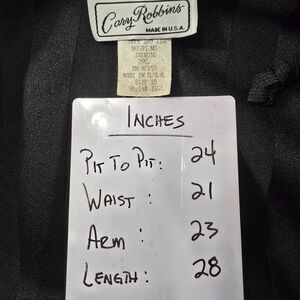 Cary Robbins
MADE IN U.S.A.
MADE IN U.S.A.
INCHES
PIT TO PIT: 24
WAIST: 21
ARM: 23
LENGTH: 28